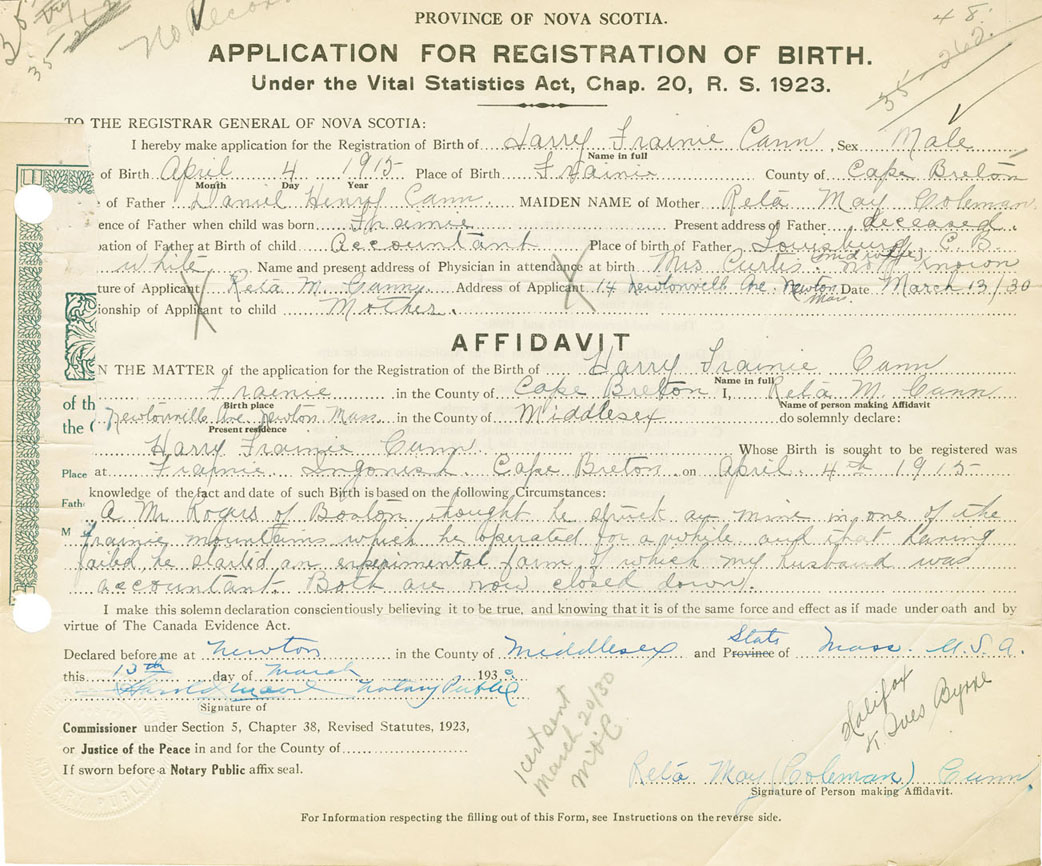 35
35-262
No Record
48.
35-262.
PROVINCE OF NOVA SCOTIA.
APPLICATION FOR REGISTRATION OF BIRTH.
Under the Vital Statistics Act, Chap. 20, R. S. 1923.
TO THE REGISTRAR GENERAL OF NOVA SCOTIA:
I hereby make application for the Registration of Birth of Harry Frainie Cann, Sex Male
Name in full
of Birth April 4 1915 Place of Birth Frainie County of Cape Breton
Month Day Year
of Father Daniel Henry Cann MAIDEN NAME of Mother Reta May Coleman
ence of Father when child was born Frainie Present address of Father deceased.
pation of Father at Birth of child Accountant Place of birth of Father Louisburg, C.B.
white Name and present address of Physician in attendance at birth Mrs Curtis (midwife) not known
ture of Applicant Reta M. Cann Address of Applicant 14 Newtonville Ave. Newton Mass. Date March 13/30
ionship of Applicant to child Mother.
AFFIDAVIT
N THE MATTER of the application for the Registration of the Birth of Harry Frainie Cann
Name in full
of th Frainie in the County of Cape Breton I, Reta M. Cann
Birth place Name of person making Affidavit
the Newtonville Ave. Newton Mass. in the County of Middlesex do solemnly declare:
Present residence
Harry Frainie Cann Whose Birth is sought to be registered was
Place at Frainie Ingonish Cape Breton on April 4th 1915
knowledge of the fact and date of such Birth is based on the following Circumstances:
Fath A Mr Rogers of Boston thought he struck au mine in one of the
M frainie mountains which he operated for a while and that having
failed he started an experimental farm of which my husband was
accountant. Both are now closed down.
I make this solemn declaration conscientiously believing it to be true, and knowing that it is of the same force and effect as if made under oath and by
virtue of The Canada Evidence Act.
Declared before me at Newton in the County of Middlesex and Province of State Mass. U.S.A.
this 13th day of March 1930
Harold Moore Notary Public
Signature of
Commissioner under Section 5, Chapter 38, Revised Statutes, 1923,
or Justice of the Peace in and for the County of
If sworn before a Notary Public affix seal.
1 cert sent
March 20/30
Halifax
Byrne
Reta May (Coleman) Cann
Signature of Person making Affidavit.
For Information respecting the filling out of this Form, see Instructions on the reverse side.